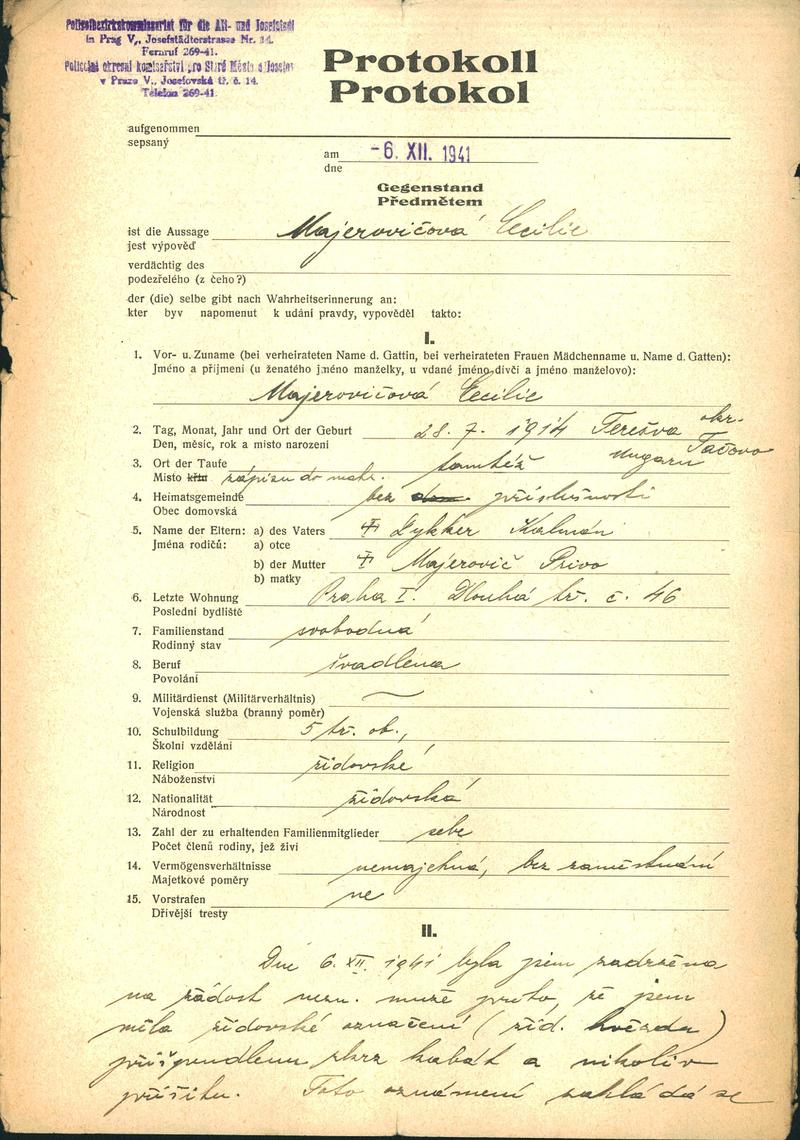 Polizeibezirkskommissariat für die Alt- und Josefstadt
in Prag V., Josefstädterstrasse Nr. 14.
Fernruf 269-41.
Policejní okresní komisařství pro Staré Město a Josefov
v Praze V., Josefovská tř. č. 14.
Telefon 269-41.
Protokoll
Protokol
aufgenommen
sepsaný
am -6. XII. 1941
dne
Gegenstand
Předmětem
ist die Aussage Majerovičová Cecilie
jest výpověď
verdächtig des
podezřelého (z čeho?)
der (die) selbe gibt nach Wahrheitserinnerung an:
kter byv napomenut k udání pravdy, vypověděl takto:
I.
1. Vor- u. Zuname (bei verheirateten Name d. Gattin, bei verheirateten Frauen Mädchenname u. Name d. Gatten):
Jméno a příjmení (u ženatého jméno manželky, u vdané jméno dívčí a jméno manželovo):
Majerovičová Cecilie
2. Tag, Monat, Jahr und Ort der Geburt 28. 7. 1914 Terešva okr.
Den, měsíc, rok a místo narození Tačovo
Ungarn
3. Ort der Taufe tamtéž
Místo křtu zápisu do matr.
4. Heimatsgemeinde bez příslušnosti
Obec domovská
5. Name der Eltern: a) des Vaters Lykker Kalman
Jména rodičů: a) otce
b) der Mutter Majerovič Privo
b) matky
6. Letzte Wohnung Praha I. Dlouhá tř. č. 46
Poslední bydliště
7. Familienstand svobodná
Rodinný stav
8. Beruf švadlena
Povolání
9. Militärdienst (Militärverhältnis)
Vojenská služba (branný poměr)
10. Schulbildung 5 tř. ob.,
Školní vzdělání
11. Religion židovské
Náboženství
12. Nationalität židovská
Národnost
13. Zahl der zu erhaltenden Familienmitglieder sebe
Počet členů rodiny, jež živí
14. Vermögensverhältnisse nemajetná, bez zaměstnání
Majetkové poměry
15. Vorstrafen ne
Dřívější tresty
II.
Dne 6. XII. 1941 byla jsem zadržena
na žádost nezn. muže proto, že jsem
měla židovské označení (žid. hvězda)
přišpendlenu skrz kabát a nikoliv
přišitu. Toto oznámení zakládá se